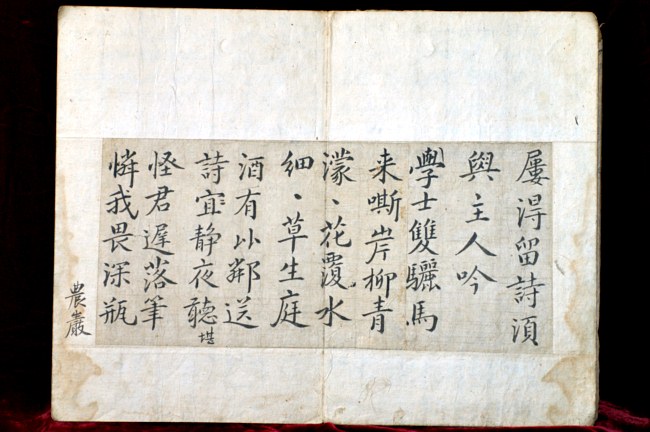 屢淂留詩須
與主人吟
學士雙驪馬
来嘶岸柳青
濛、花覆水
細、草生庭
酒有比鄰送
詩宜静夜聽堪
怪君遲落筆
憐我畏深瓶
農巖